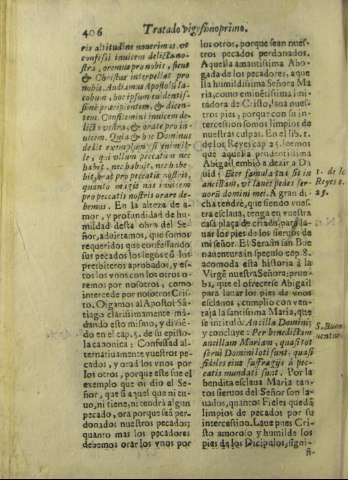 406
Tratado vigesimoprimo,
ris altitudine nouerimus, vt
confessi inuicem delicta no-
stra, oremus pro nobis, sicut
& Christus interpellat pro
nobis. Audiamus Apostolū Ia-
cobum, hoc ipsum euidentis-
simè praecipientem, & dicen-
tem. Confitemini inuicem de-
licta vestra, & orate pro in-
uicem. Quia & hoc Dominus
dedit exemplum: si enim il-
le, qui vllum peccatum nec
habet, nec habuit, nec habe-
bit, orat pro peccatis nostris,
quanto magis nos inuicem
pro peccatis nostris orare de-
bemus. En la alteza de a-
mor, y profundidad de hu-
mildad desta obra del Se-
ñor, aduirtamos, que somos
requeridos que confessando
sus pecados los legos à los
presbiteros aprobados, y es-
tos los vnos con los otros o-
remos por nosotros, como
intercede por nosotros Cris-
to. Oigamos al Apostol Sā-
tiago clarissimamente mā-
dando esto mismo, y dizien-
do en el cap. 5. de su episto-
la canonica: Confessad al-
ternatiuamente vuestros pe-
cados, y orad los vnos por
los otros, porque este fue el
exemplo que nos dio el Se-
ñor, que si aquel que ni tu-
uo, ni tiene, ni tendrà algun
pecado, ora porque seā per-
donados nuestros pecados;
quanto mas los pecadores
debemos orar los vnos por
los otros, porque sean nues-
tros pecados perdonados.
Aquella amantissima Abo-
gada de los pecadores, aque
lla humildissima Señora Ma
ria, como eminentissima imi
tadora de Cristo, laua nues-
tros pies, porque con su in-
tercession somos limpios de
nuestras culpas. En el lib. 1.
de los Reyes cap. 25. leemos
que aquella prudentissima
Abigail embiò a dezir a Da
uid: Ecce famula tua sit in
ancillam, vt lauet pedes ser-
uorū domini mei. A gran di-
cha tendrè, que siendo vues-
tra esclaua, tenga en vuestra
casa plaça de criada, para la-
uar los pies de los sieruos de
mi señor. El Serafin san Bue
nauentura in speculo cap. 8.
acomoda esta historia à la
Virgē nuestra Señora: prue-
ba, que el ofrecerse Abigail
para lauar los pies de vnos
esclauos, cumplio con ven-
taja la santissima Maria, que
se intitulò Ancilla Domini;
y concluye: Per benedictam
ancillam Mariam, quasi tot
serui Domini loti sunt, quasi
fideles eius suffragijs à pec-
catis mundati sunt. Por la
bendita esclaua Maria tan-
tos sieruos del Señor son la-
uados, quantos Fieles quedā
limpios de pecados por su
intercession. Laue pues Cris
to amoroso y humilde los
pies de los Dicipulos, signi-
fi-
1. de los
Reyes c.
25.
S. Buen-